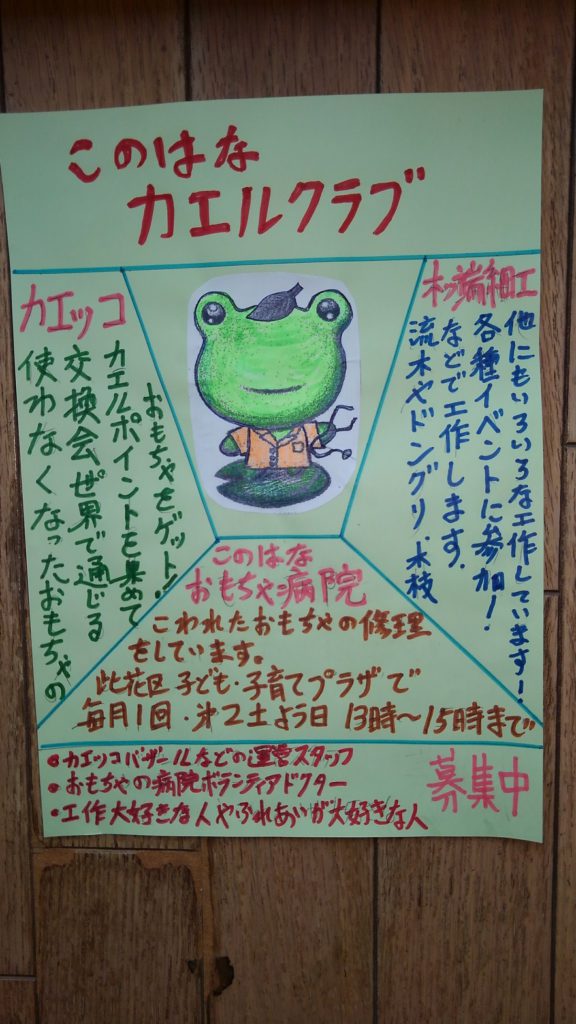 このはな
カエルクラブ
カエッコ
使わなくなったおもちゃの
交換会ぜ世界で通じる
カエルポイントを集めて
おもちゃをゲット!
木ッ端細工
流木やドングリ、木枝
などで工作します.
各種イベントに参加!
他にもいろいろな工作しています!
このはな
おもちゃ病院
こわれたおもちゃの修理
をしています。
此花区子ども・子育てプラザで
毎月1回・第2土よう日 13時〜15時まで
・カエッコバザールなどの運営スタッフ
・おもちゃの病院ボランティアドクター
・工作大好きな人やふれあいが大好きな人
募集中